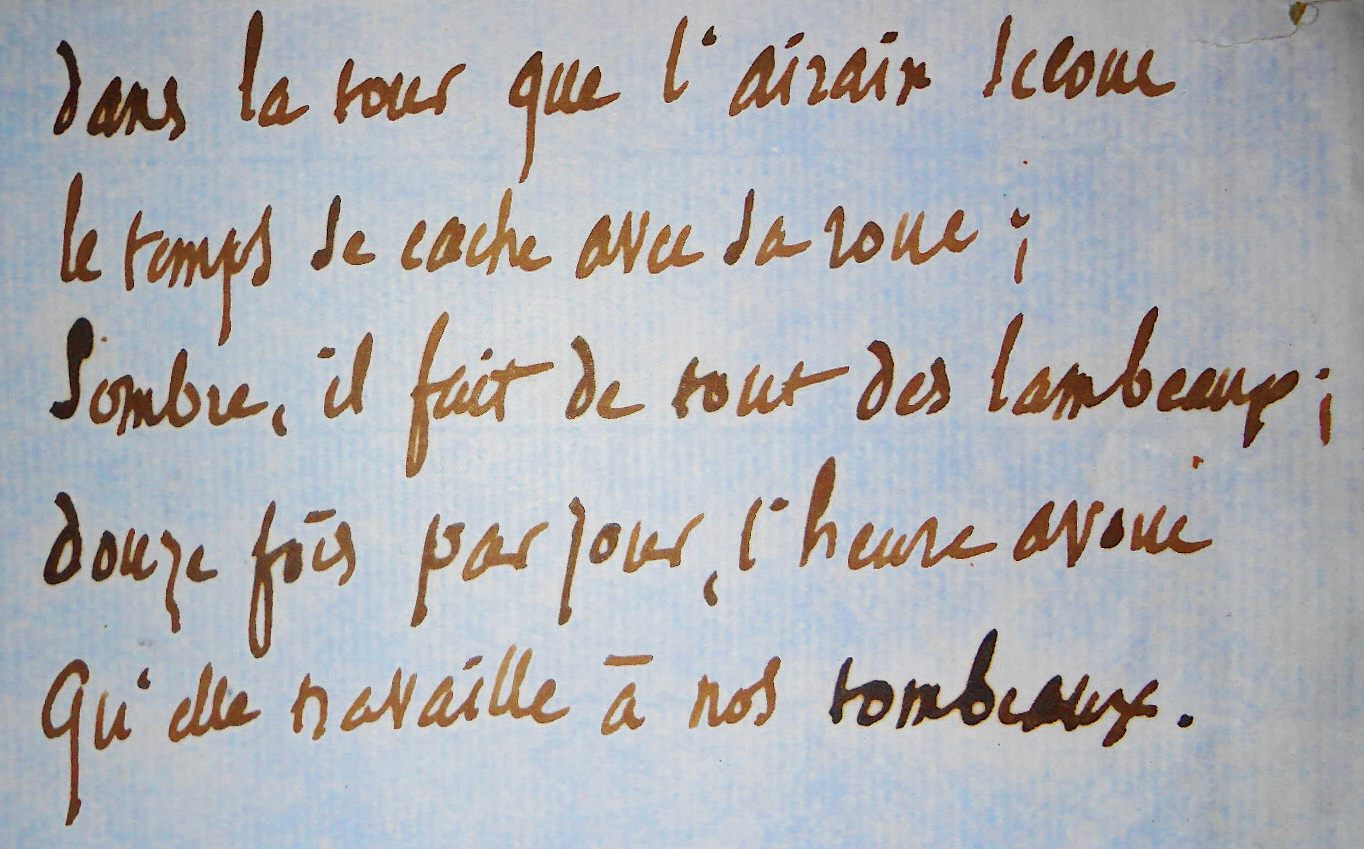 dans la tour que l'airain secoue
le temps se cache avec sa roue ;
Sombre, il fait de tout des lambeaux ;
douze fois par jour, l'heure avoue
Qu'elle travaille à nos tombeaux.